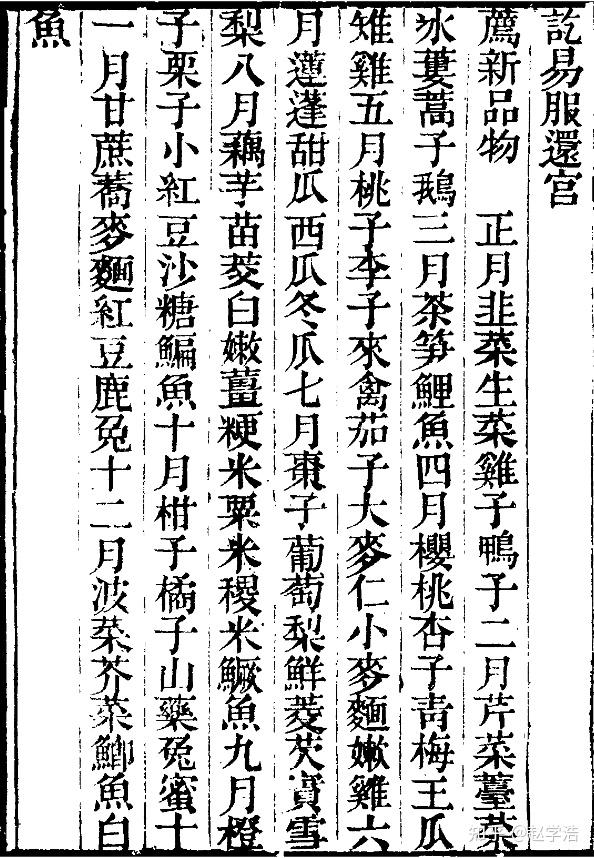 訖易服還宮
薦新品物 正月韭菜生菜雞子鴨子二月芹菜薹菜
冰蔞蒿子鵝三月茶笋鯉魚四月櫻桃杏子青梅王瓜
雉雞五月桃子李子來禽茄子大麥仁小麥麵嫩雞六
月蓮蓬甜瓜西瓜冬瓜七月棗子葡萄梨鮮菱芡實雪
梨八月藕芋苗茭白嫩薑粳米粟米稷米鱖魚九月橙
子栗子小紅豆沙糖鯿魚十月柑子橘子山藥兔蜜十
一月甘蔗蕎麥麵紅豆鹿兔十二月波菜芥菜鯽魚白
魚
知乎 @赵学浩